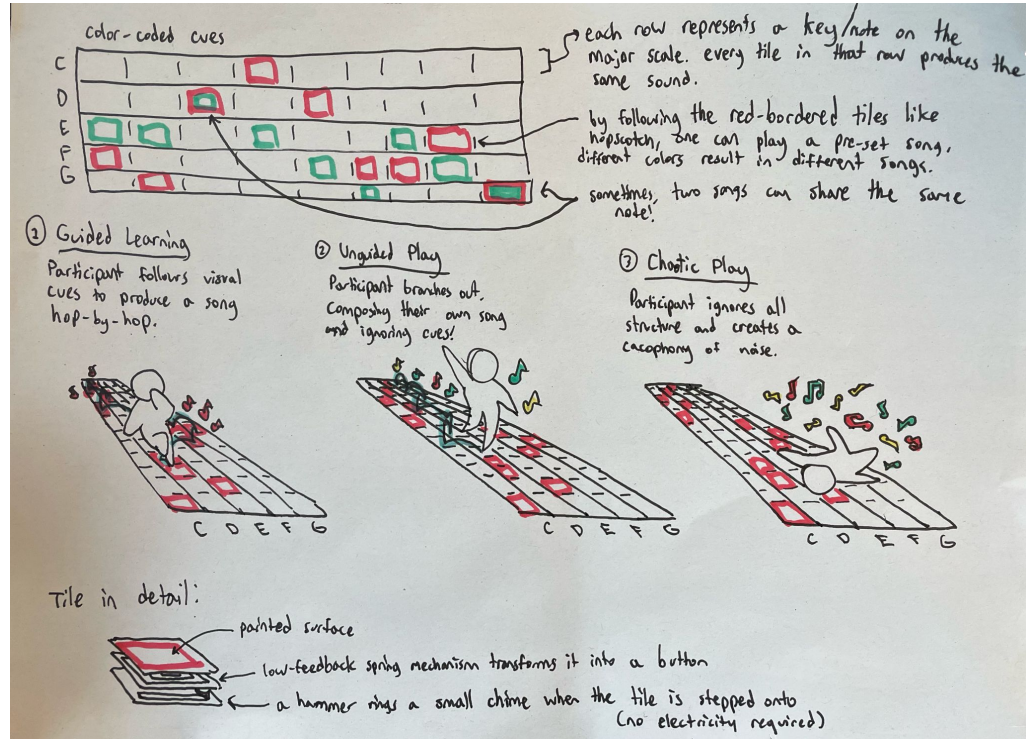 color-coded cues
C
D
E
F
G
each row represents a key/note on the
major scale. every tile in that row produces the
same sound.
by following the red-bordered tiles like
hopscotch, one can play a pre-set song.
different colors result in different songs.
sometimes, two songs can share the same
note!
① Guided Learning
Participant follows visual
cues to produce a song
hop-by-hop.
② Unguided Play
Participant branches out,
composing their own song
and ignoring cues!
③ Chaotic Play
Participant ignores all
structure and creates a
cacophony of noise.
C D E F G
C D E F G
C D E F G
Tile in detail:
painted surface
low-feedback spring mechanism transforms it into a button
a hammer rings a small chime when the tile is stepped onto
(no electricity required)